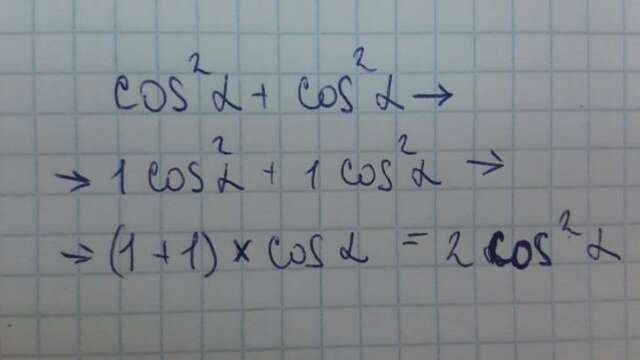 cos²α + cos²α →
→ 1 cos²α + 1 cos²α →
→ (1 + 1) × cos α = 2 cos² α